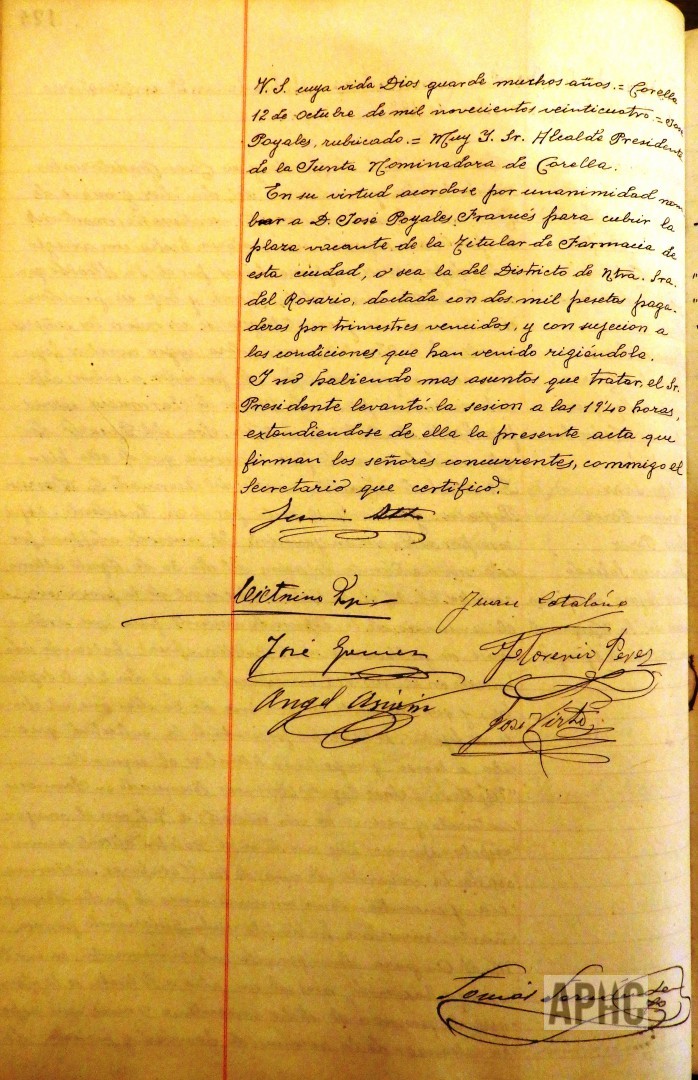 V. S. cuya vida Dios guarde muchos años. = Corella
12 de Octubre de mil novecientos veinticuatro. =
Poyales, rubicado. = Muy Y. Sr. Alcalde Presidente
de la Junta Nominadora de Corella.
En su virtud acordose por unanimidad nom
brar a D. José Poyales Francés para cubrir la
plaza vacante de la Titular de Farmacia de
esta ciudad, o sea la del Districto de Ntra. Sra.
del Rosario, doctada con dos mil pesetas paga-
deras por trimestres vencidos, y con sujecion a
las condiciones que han venido rigiéndola.
Y no habiendo mas asuntos que tratar, el Sr.
Presidente levantó la sesion a las 19'40 horas,
extendiendose de ella la presente acta que
firman los señores concurrentes, commigo el
Secretario que certifico.
Juan Catalán
José Gomez
Florencio Perez
Angel
José Virto
Tomás
APHC